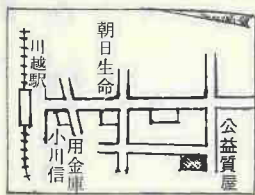 川越駅
朝日生命
小川信用金庫
公益質屋